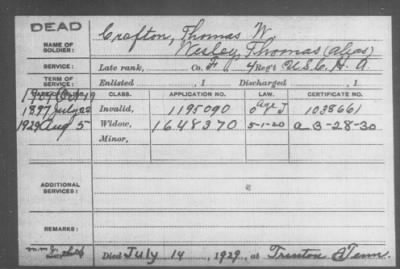 DEAD
NAME OF SOLDIER: Crafton, Thomas W.
Wesley, Thomas (alias)
SERVICE: Late rank, Co. F, 4 Reg't U.S.C.H.A.
TERM OF SERVICE: Enlisted , 1 Discharged , 1
CLASS. APPLICATION NO. LAW. CERTIFICATE NO.
1897 July 22 Invalid, 1195090 Age J 1038661
1929 Aug 5 Widow, 1648370 5-1-20 a 3-28-30
Minor,
ADDITIONAL SERVICES:
REMARKS:
Died July 14, 1929, at Trenton Tenn.